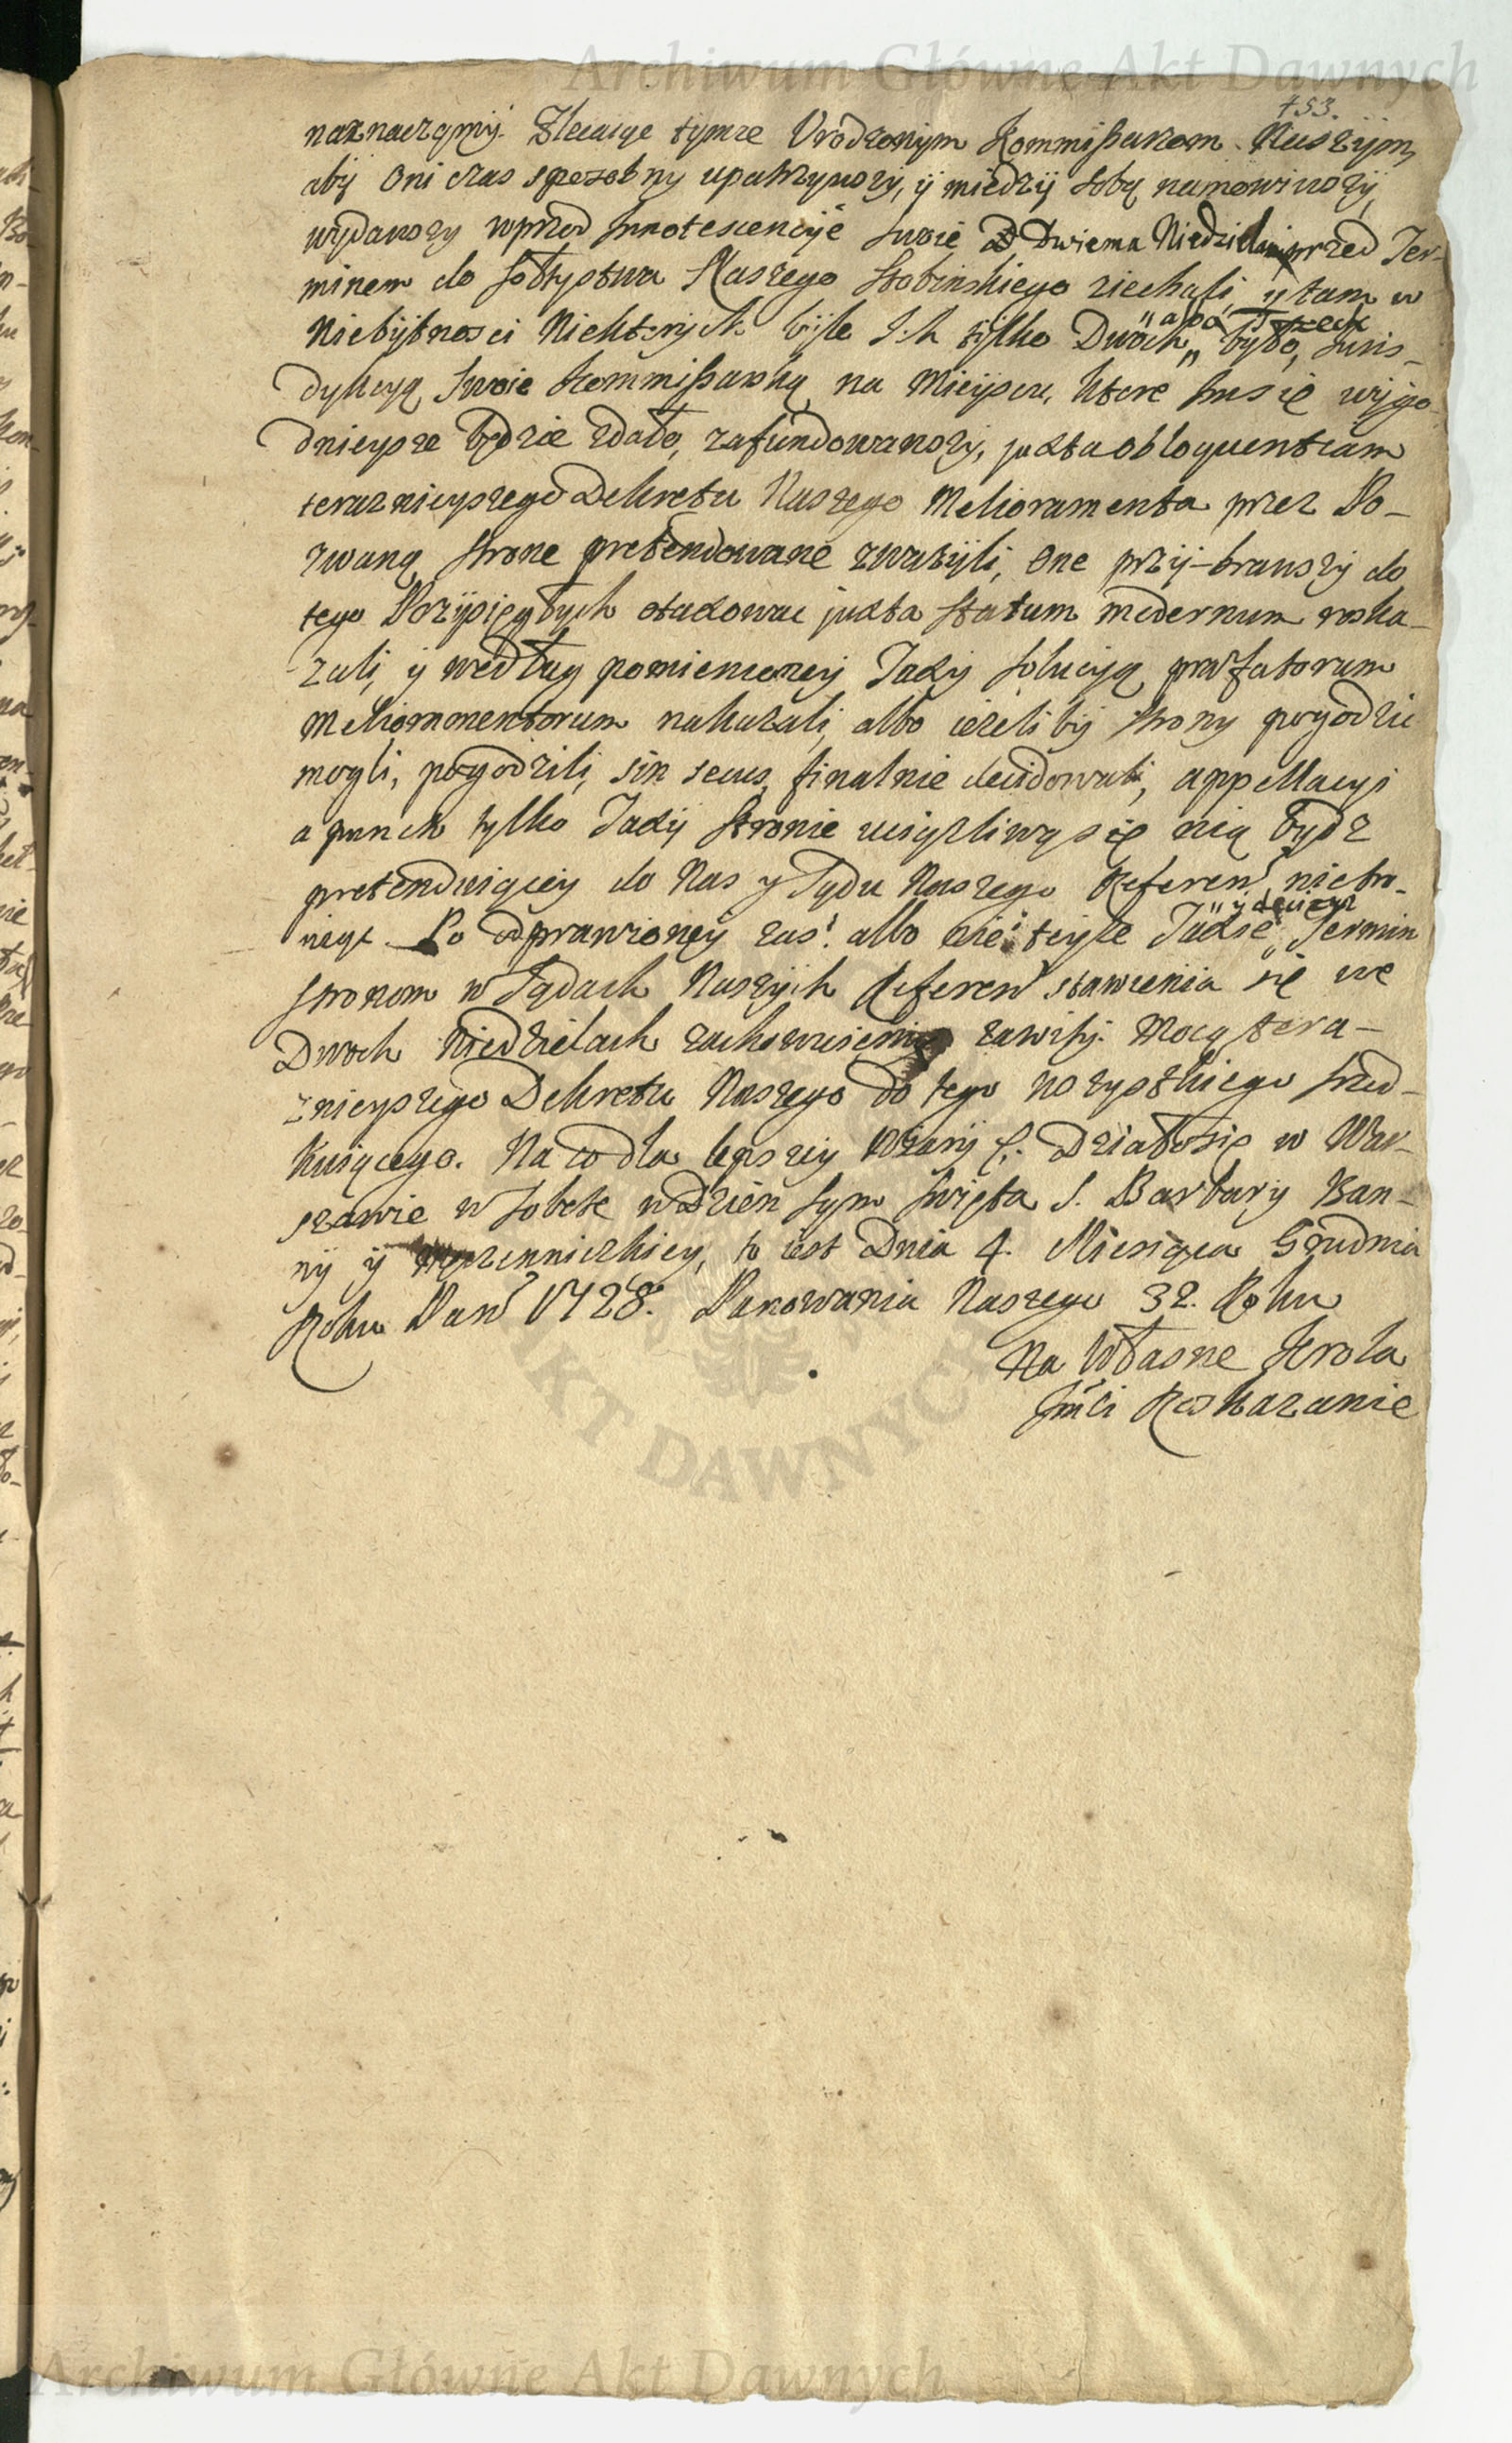 Archiwum Główne Akt Dawnych
753.
naznaczamy. Zlecaiąc tymze Urodzonym Kommissarzom Naszym,
aby oni czas sposobny upatrzywszy, y miedzy sobą namowiwszy,
wydawszy wprzod Innotescencye swoie Dwiema Niedzielami przed Ter-
minem do Sołtystwa Naszego Stobinskiego ziechali, y tam w
Niebytnosci Niektorych byle Ich tylko Dwoch „albo Trzech„ było, Juris-
dykcyą swoie Kommissarską na Mieyscu, ktore Im się wygo-
dnieysze będzie zdało, zafundowawszy, juxta obloquentiam
teraznieyszego Dekretu Naszego Melioramenta przez Po-
zwaną strone pretendowane zważyli, one przy-brawszy do
tego Przysięgłych otaxowac juxta statum modernum roska-
zali, y według pomienioney Taxy solucyą præfatorum
Meliormmentorum nakazali, albo ieżeliby strony pogodzic
mogli, pogodzili, sin secus, finalnie decidowali, appellacyi
a punck tylko Taxy stronie uciążliwą się nią bydz
pretenduiącey do Nas y Sądu Naszego Referen niebro-
niąc. Po odprawioney zas albo nie teyze Taxie „y decizyi„ Termin
stronom w Sądach Naszych Referen stawienia się we
Dwoch Niedzielach zachowuiemy zawisły. Mocą tera-
znieyszego Dekretu Naszego do tego wszystkiego srzod-
kuiącego. Na co dla lepszey Wiary &. Działo się w War-
szawie w Sobote w Dzien sym Swięta S. Barbary Pan-
ny y Męczenniczkiey, to iest Dnia 4. Miesiąca Grudnia
Roku Pan 1728. Panowania Naszego 32. Roku
Na Własne Krola
Jmci Roskazanie
AKT DAWNYCH
Archiwum Główne Akt Dawnych